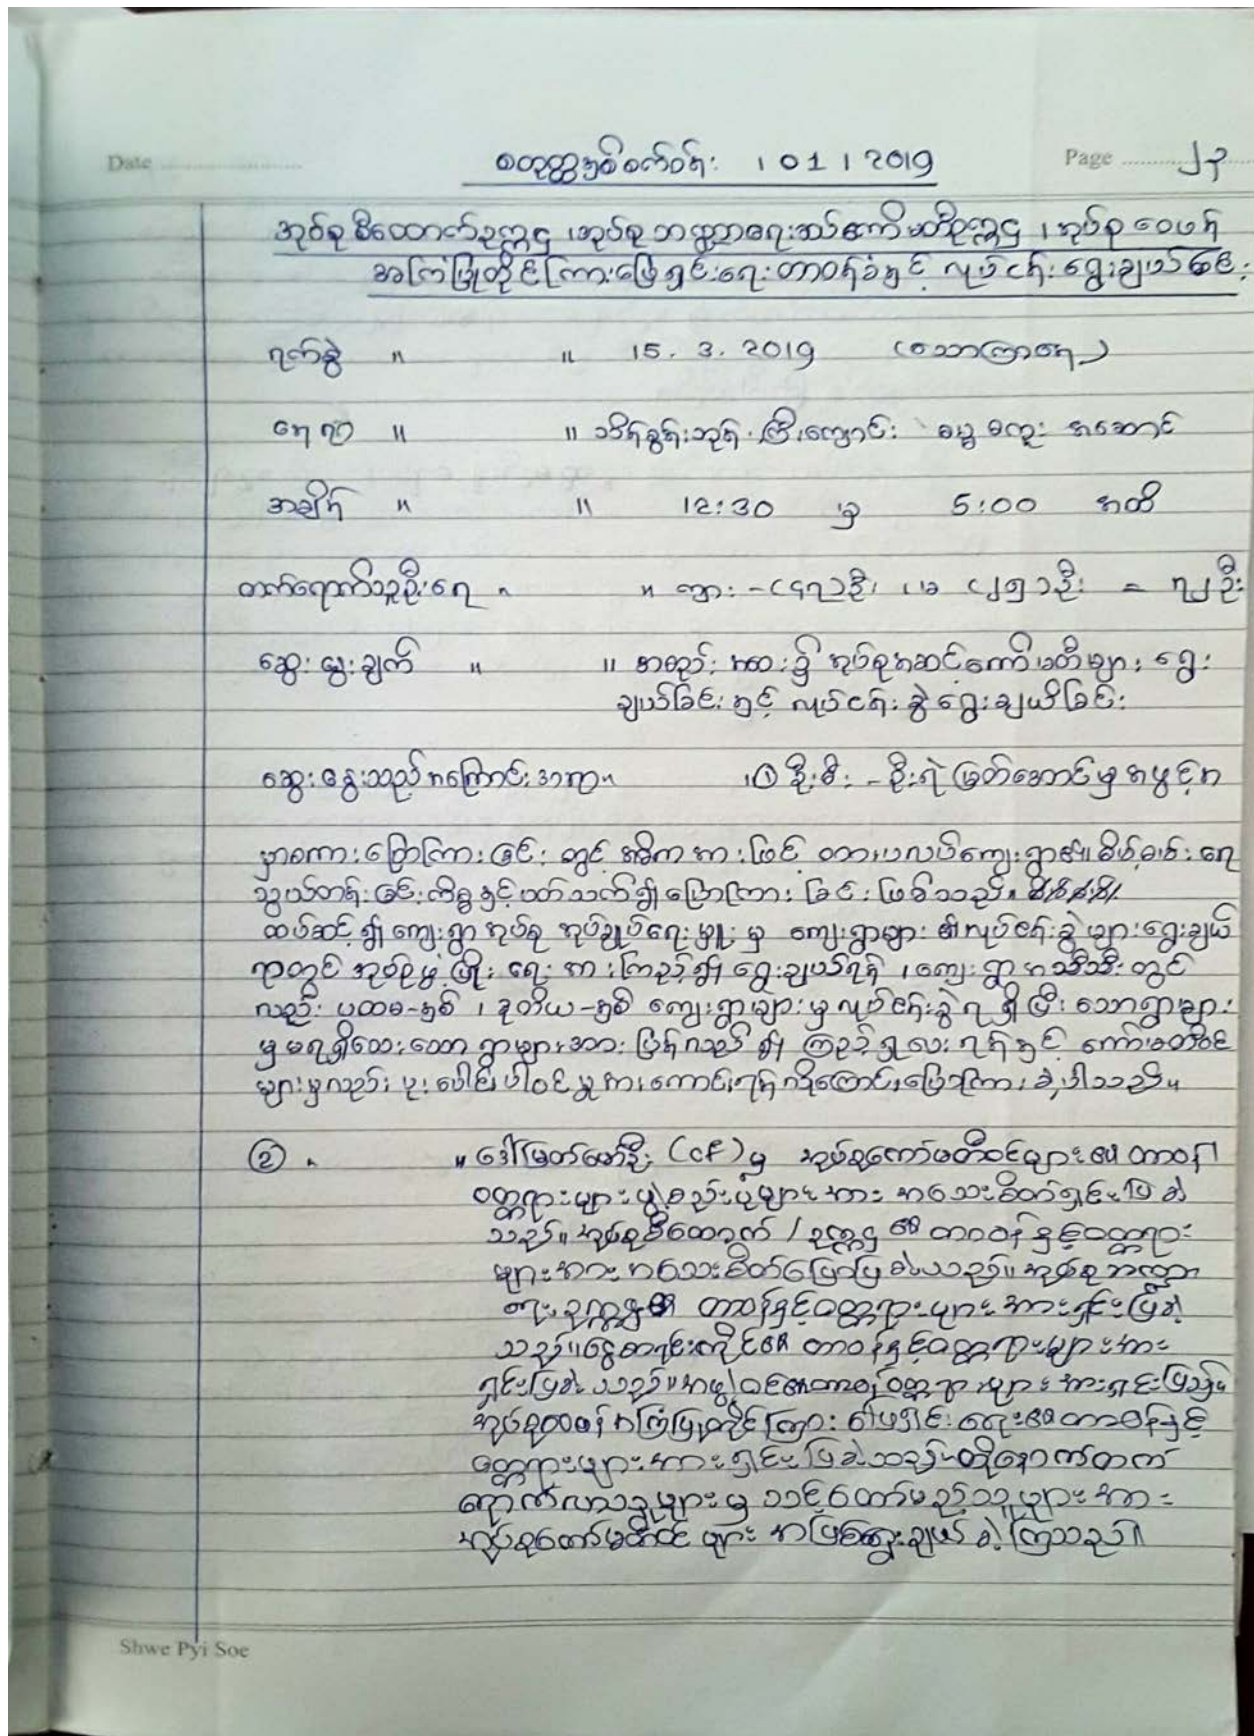 Date
စတုတ္ထနှစ်စက်ဝန်း ၊ 01 ၊ 2019
Page ၂၃
အုပ်စုစီထောက်ဥက္ကဋ္ဌ ၊ အုပ်စုဘဏ္ဍာရေးဆပ်ကော်မတီဥက္ကဋ္ဌ ၊ အုပ်စုဝေဖန်
အကြံပြုတိုင်ကြားဖြေရှင်းရေးတာဝန်ခံနှင့် လုပ်ငန်းရွေးချယ်ခြင်း
ရက်စွဲ " " 15. 3. 2019 (သောကြာနေ့)
နေရာ " " သိမ်ခွန်းဘုန်းကြီးကျောင်း ဓမ္မစကူး အဆောင်
အချိန် " " 12:30 မှ 5:00 အထိ
တက်ရောက်သူဦးရေ " " ကျား - (၄၇)ဦး၊ မ (၂၅)ဦး = ၇၂ ဦး
ဆွေးနွေးချက် " " အစည်းအဝေး၌ အုပ်စုအဆင့်ကော်မတီများ ရွေး
ချယ်ခြင်းနှင့် လုပ်ငန်းခွဲရွေးချယ်ခြင်း
ဆွေးနွေးသည့်အကြောင်းအရာ " ၊① ဦးစီး - ဦးရဲမြတ်အောင်မှ အဖွင့်အ
မှာစကားပြောကြားခြင်းတွင် အဓိကအားဖြင့် ကျေးရွာ၏ မီး
သွယ်တန်းခြင်းကိစ္စနှင့်ပတ်သက်၍ ပြောကြားခြင်းဖြစ်သည်။
ထပ်ဆင့်၍ ကျေးရွာအုပ်စု အုပ်ချုပ်ရေးမှူးမှ ကျေးရွာများ၏ လုပ်ငန်းခွဲများရွေးချယ်
ရာတွင် အုပ်စုဖွံ့ဖြိုးရေးအားကြည့်၍ ရွေးချယ်ရန် ၊ ကျေးရွာအသီးသီးတွင်
လည်း ပထမ-နှစ် ၊ ဒုတိယ-နှစ် ကျေးရွာများမှ လုပ်ငန်းခွဲရရှိပြီးသောရွာများ
မှ မရရှိသေးသော ရွာများအား ပြန်လည်၍ ကြည့်ရှုပေးရန်နှင့် ကော်မတီဝင်
များမှလည်း ပူးပေါင်းပါဝင်မှုအားကောင်းရန် လိုကြောင်းပြောကြားခဲ့ပါသည်။
② " " ဒေါ်မြတ်မော်ဦး (CF) မှ အုပ်စုကော်မတီဝင်များ၏ တာဝန်
ဝတ္တရားများဖွဲ့စည်းပုံများအား အသေးစိတ်ရှင်းပြခဲ့
သည်။ အုပ်စုစီထောက် / ဥက္ကဋ္ဌ ၏ တာဝန်နှင့်ဝတ္တရား
များအား အသေးစိတ်ပြောပြခဲ့သည်။ အုပ်စုဘဏ္ဍာ
ရေးဥက္ကဋ္ဌ၏ တာဝန်နှင့်ဝတ္တရားများအားရှင်းပြခဲ့
သည်။ ငွေစာရင်းကိုင်၏ တာဝန်နှင့်ဝတ္တရားများအား
ရှင်းပြခဲ့သည်။ အဖွဲ့ဝင်၏တာဝန်ဝတ္တရားများအားရှင်းပြသည်။
အုပ်စုဝေဖန်အကြံပြုတိုင်ကြားဖြေရှင်းရေး၏တာဝန်နှင့်
ဝတ္တရားများအားရှင်းပြခဲ့သည်။ ထို့နောက်တက်
ရောက်လာသူများမှ သင့်တော်မည့်သူများအား
အုပ်စုကော်မတီဝင်များ အဖြစ်ရွေးချယ်ခဲ့ကြသည်။
Shwe Pyi Soe